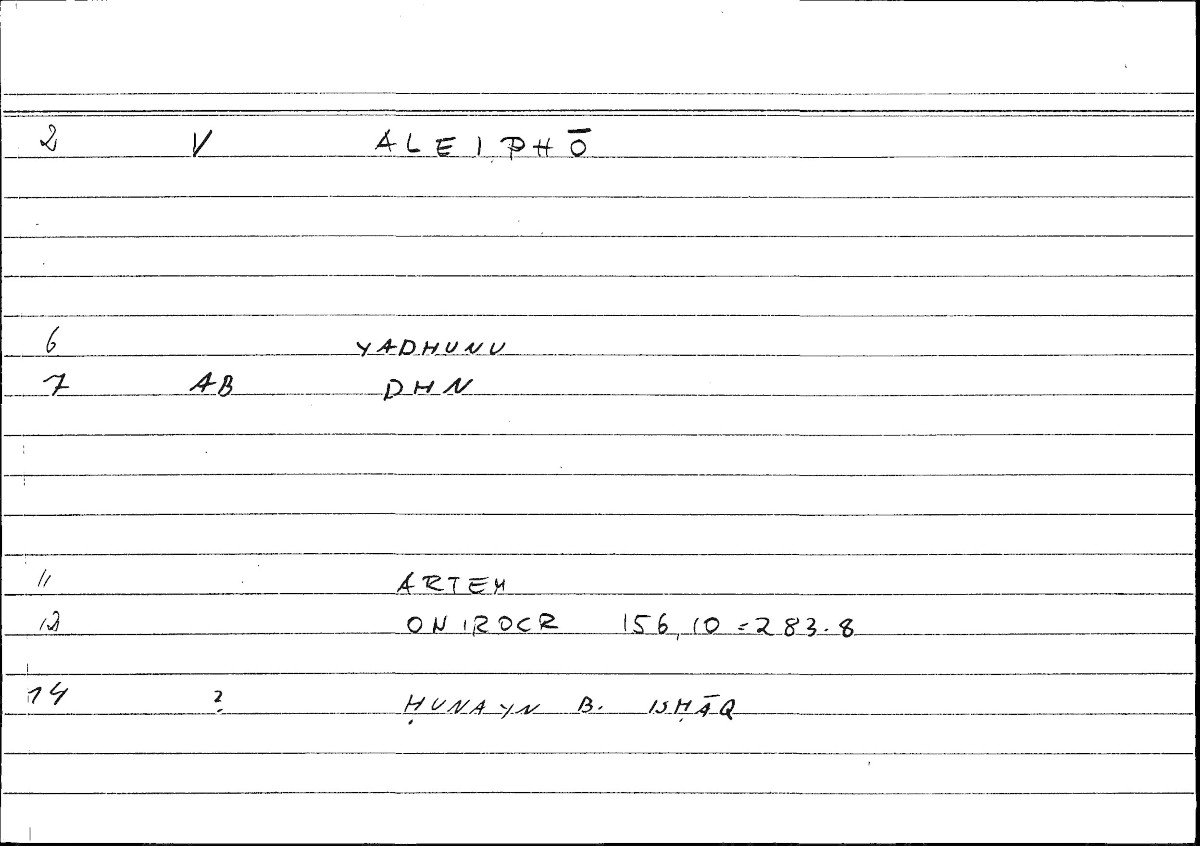 2 V ALEIPHŌ
6 YADHUNU
7 AB DHN
11 ARTEM
12 ONIROCR 156,10=283.8
14 ? ḤUNAYN B. ISḤĀQ